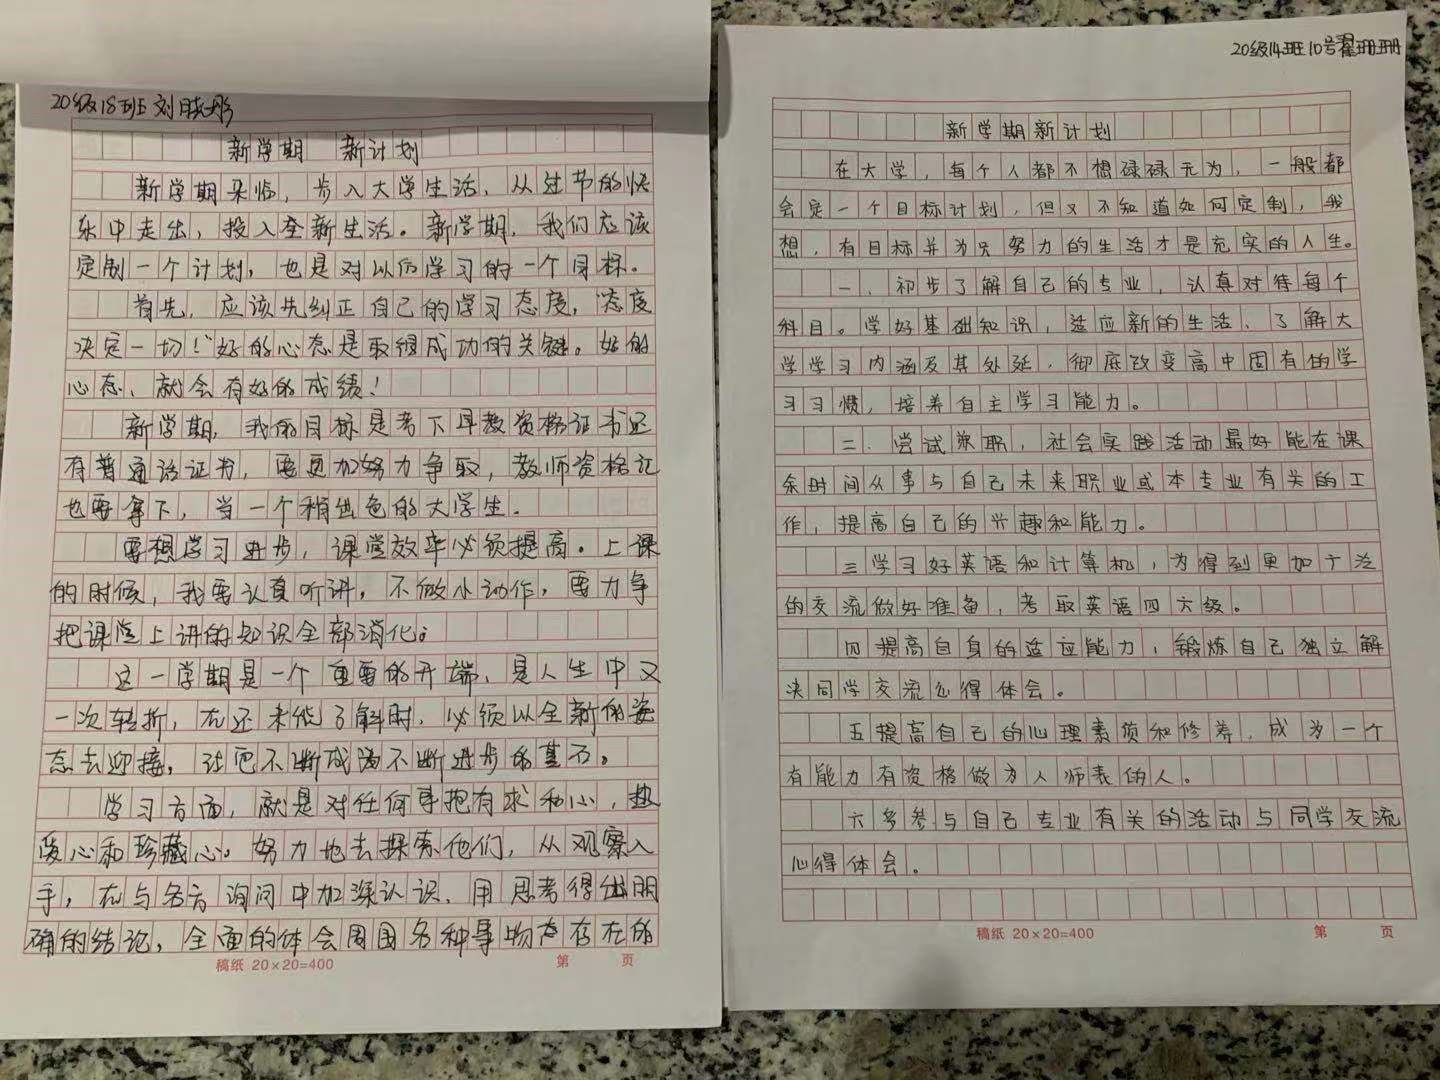 20级18班 刘晓彤
新学期 新计划
新学期来临，步入大学生活，从过节的快
乐中走出，投入全新生活。新学期，我们应该
定制一个计划，也是对以后学习的一个目标。
首先，应该先纠正自己的学习态度，“态度
决定一切！”好的心态是取得成功的关键。好的
心态、就会有好的成绩！
新学期，我的目标是考下早教资格证书还
有普通话证书，要更加努力争取，教师资格证
也要拿下，当一个稍出色的大学生。
要想学习进步，课堂效率必须提高。上课
的时候，我要认真听讲，不做小动作，要力争
把课堂上讲的知识全部消化。
这一学期是一个重要的开端，是人生中又
一次转折，在还未能了解时，必须以全新的姿
态去迎接，让它不断成为不断进步的基石。
学习方面，就是对任何事抱有求和心，热
爱心和珍藏心。努力地去探索他们，从观察入
手，在与各方询问中加深认识，用思考得出明
确的结论，全面的体会周围各种事物存在的
稿纸 20×20=400 第 页
20级14班10号翟珊珊
新学期新计划
在大学，每个人都不想碌碌无为，一般都
会定一个目标计划，但又不知道如何定制，我
想，有目标并为之努力的生活才是充实的人生。
一、初步了解自己的专业，认真对待每个
科目。学好基础知识，适应新的生活、了解大
学学习内涵及其外延，彻底改变高中固有的学
习习惯，培养自主学习能力。
二、尝试兼职，社会实践活动最好能在课
余时间从事与自己未来职业或本专业有关的工
作，提高自己的兴趣和能力。
三学习好英语和计算机，为得到更加广泛
的交流做好准备，考取英语四六级。
四提高自身的适应能力，锻炼自己独立解
决同学交流心得体会。
五提高自己的心理素质和修养，成为一个
有能力有资格做为人师表的人。
六多参与自己专业有关的活动与同学交流
心得体会。
稿纸 20×20=400 第 页